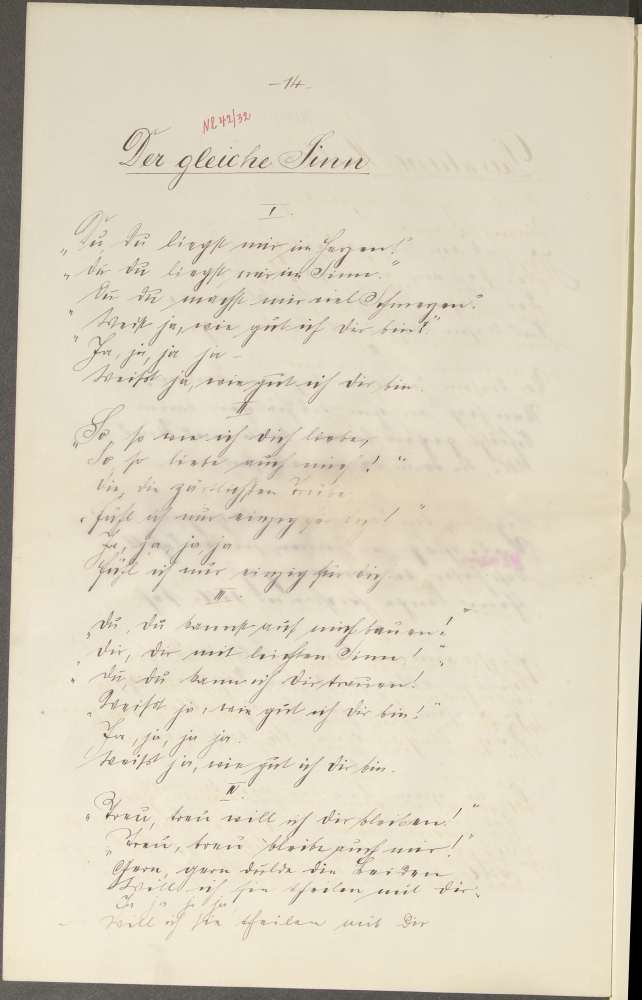 - 14 -
Nl 42/32
Der gleiche Sinn
I.
„Du, Du liegst mir im Herzen!"
„Du Du liegst mir im Sinn."
Du du machst mir viel Schmerzen!
„Weißt ja, wie gut ich Dir bin!"
„Ja, ja, ja ja –
Weißt ja, wie gut ich Dir bin.
II
„So, so wie ich Dich liebe,
So, so liebe auch mich!"
Die, die zärtlichsten Triebe
„fühl ich nur einzig für Dich!"
Ja, ja, ja, ja
fühl ich nur einzig für Dich.
III.
„Du, Du kannst auf mich bauen!"
„Dir, Dir mit leichten Sinn!"
„Du Du kann ich Dir trauen!
„Weißt ja, wie gut ich Dir bin!"
Ja, ja, ja ja.
Weißt ja, wie gut ich Dir bin.
IV
„Treu, treu will ich Dir bleiben!"
„Treu, treu bleibe auch mir!"
Gern, gern dulde die Leiden
Will ich sie theilen mit Dir.
Ja ja ja ja
Will ich sie theilen mit Dir